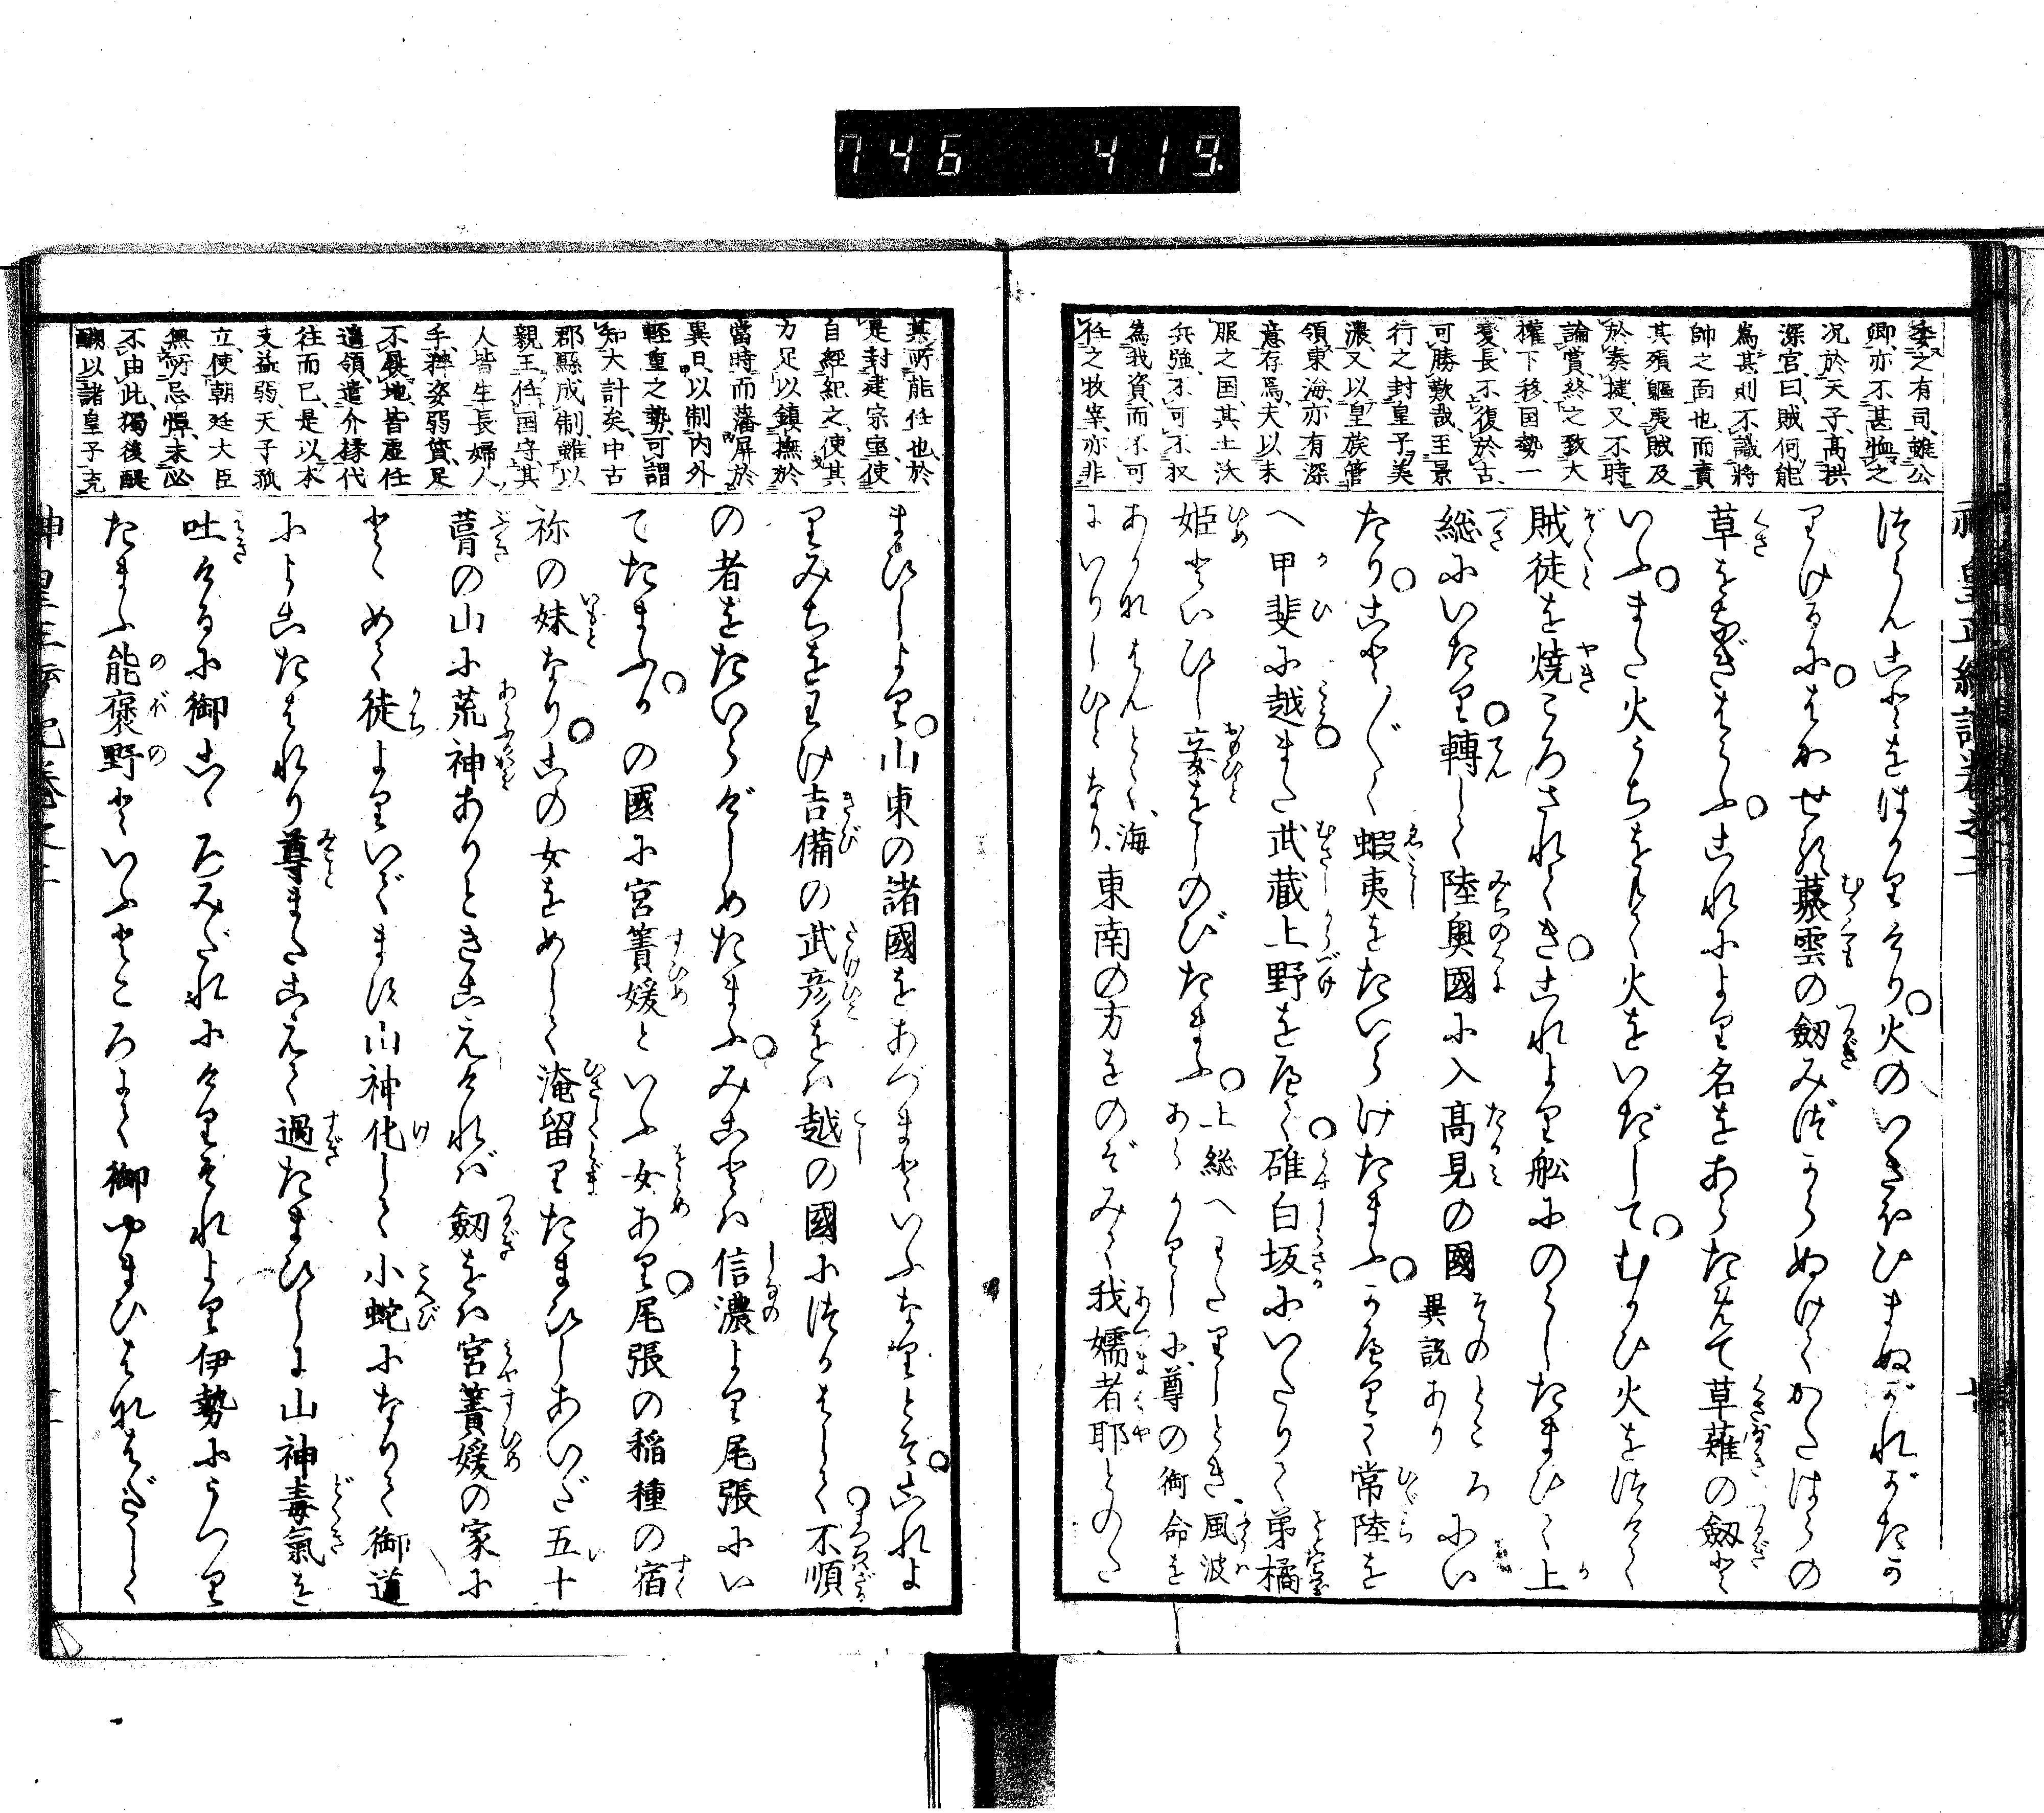 746 419
委之有司、雖公
卿亦不甚恤之
况於天子、高拱
深宮曰、賊何能
為、甚則不識将
帥之面也、而責
其殞軀夷賊、及
於奏捷、又不時
論賞、終之致大
權下移、国勢一
憂、長不復於古、
可勝歎哉、至景
行之封皇子美
濃、又以皇族管
領東海、亦有深
意存焉、夫以未
服之国、其土沃
兵強、不可不収
為我資、而不可
任之牧宰、亦非
つらんことをはかりけり火のいきほひまぬがれがたか
りけるにはかせる䕃雲の劔みづからぬけてかたはらの
草をなぎはらふこれにより名をあらためて草薙の劔と
いふまた火うちをもて火をいだしてむかひ火をつけて
賊徒を焼ころされにきこれより舩にのらしたまひて上
総にいたり轉して陸奥國に入高見の國そのところ異説ありにい
たりことごとく蝦夷をたいらげたまふかへりて常陸を
へ甲斐に越また武蔵上野をへて碓白坂にいたりて弟橘
姫といひし妾をしのびたまふ上総へわたりしとき風波
あらかりしに尊の御命を
あがなはんとて海
にいりしひとなり東南の方をのぞみて我嬬者耶とのた
其所能任也、於
是封建宗室、使
自經紀之、使其
力足以鎮撫於
當時、而藩屏於
異日、以制内外
輕重之勢、可謂
知大計矣、中古
郡縣成制、雖以
親王任国守、其
人皆生長婦人
手、粹姿弱質、足
不殿地、皆虚任
遥領、遣介掾代
往而已、是以本
支益弱、天子孤
立、使朝廷大臣
無所忌憚、未必
不由此、獨後醍
醐以諸皇子克
まひしより山東の諸國をあづまといふなりとぞこれよ
りみちをわけ吉備の武彦をば越の國につかはして不順
の者をたいらげしめたまふみことは信濃より尾張にい
でたまふかの國に宮簀媛といふ女あり尾張の稲種の宿
祢の妹なりこの女をめして淹留りたまひしあいだ五十
葺の山に荒神ありときこえければ劔をば宮簀媛の家に
とゞめて徒よりいでます山神化して小蛇になりて御道
によこたはれり尊またこえて過たまひしに山神毒氣を
吐けるに御こゝろみだれにけりそれより伊勢にうつり
たまふ能褒野といふところにて御やまひはなはだしく